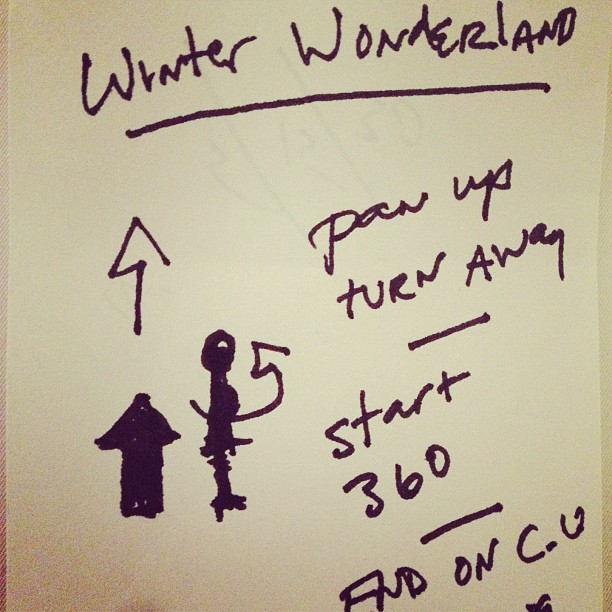 Winter Wonderland
pan up
turn away
start
360
End on C.U